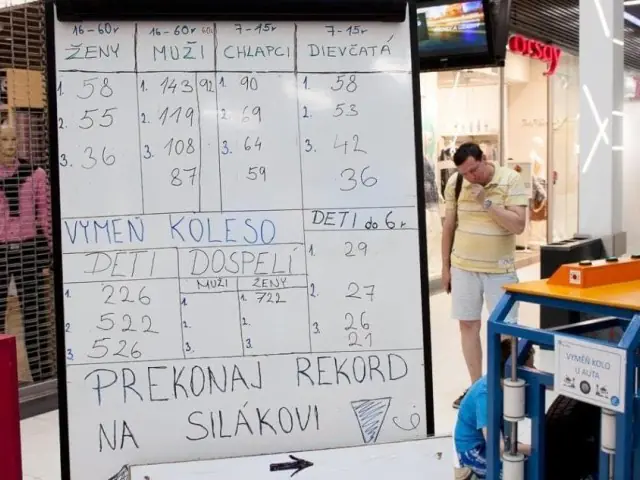 16-60r 16-60r 60r 7-15r 7-15r
ŽENY MUŽI CHLAPCI DIEVČATÁ
1. 58 1. 143 92 1. 90 1. 58
2. 55 2. 119 2. 69 2. 53
3. 36 3. 108 3. 64 3. 42
87 59 36
VYMEŇ KOLESO DETI do 6r
DETI DOSPELÍ 1. 29
MUŽI ŽENY
1. 226 1. 1. 722 2. 27
2. 522 2. 2. 3. 26
3. 526 3. 3. 21
PREKONAJ REKORD
NA SILÁKOVI
orsay
VYMĚŇ KOLO
U AUTA